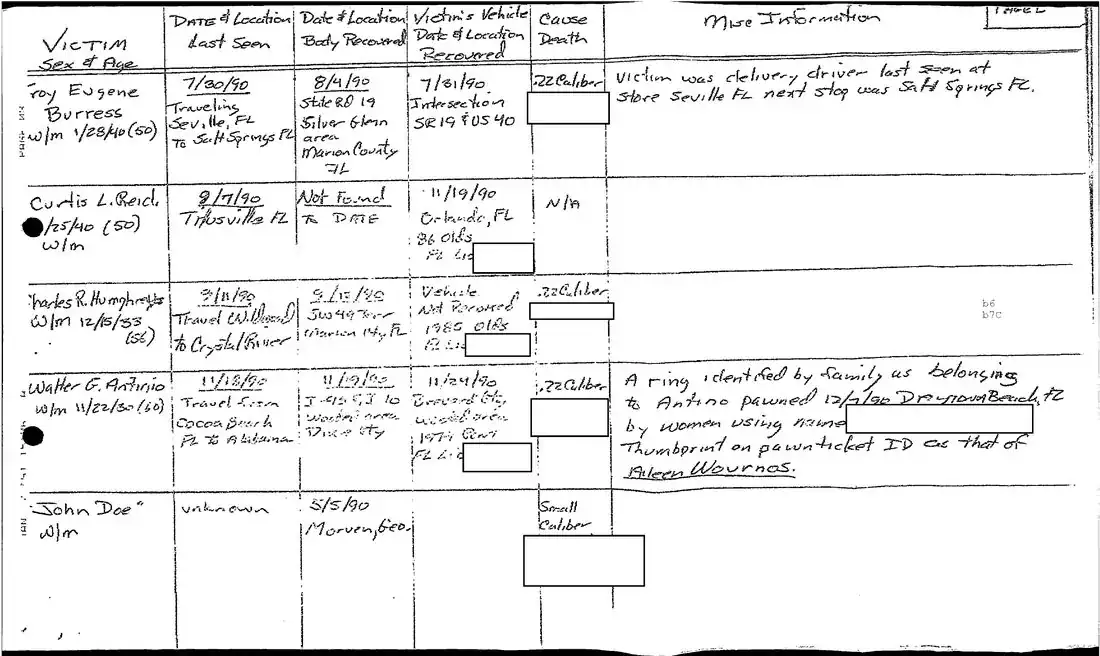 PAGE 2
VICTIM
Sex & Age
DATE & Location
Last Seen
Date & Location
Body Recovered
Victim's Vehicle
Date & Location
Recovered
Cause
Death
Misc Information
Troy Eugene
Burress
w/m 1/28/40 (50)
7/30/90
Traveling
Seville, FL
to Salt Springs FL
8/4/90
State RD 19
Silver Glenn
area
Marion County
FL
7/31/90
Intersection
SR 19 & US 40
.22 Caliber
Victim was delivery driver last seen at
store Seville FL next stop was Salt Springs FL.
Curtis L. Reid
/25/40 (50)
w/m
8/7/90
Titusville FL
Not Found
To DATE
11/19/90
Orlando, FL
86 Olds
FL Lic
N/A
Charles R. Humphreys
W/M 12/15/33
(56)
9/11/90
Travel Wildwood
to Crystal River
Marion FL
Vehicle
Not Recovered
1985 Olds
FL Lic
.22 Caliber
b6
b7C
Walter G. Antinio
w/m 11/22/30 (60)
11/18/90
Travel from
Cocoa Beach
FL to Alabama
11/19/90
Wooded area
Dixie Cty
11/24/90
Brevard Cty
wooded area
FL Lic
.22 Caliber
A ring identified by family as belonging
to Antino pawned 12/7/90 Daytona Beach, FL
by women using name
Thumbprint on pawnticket ID as that of
Aileen Wournos.
"John Doe"
w/m
unknown
5/5/90
Morven, Geo.
Small
Caliber